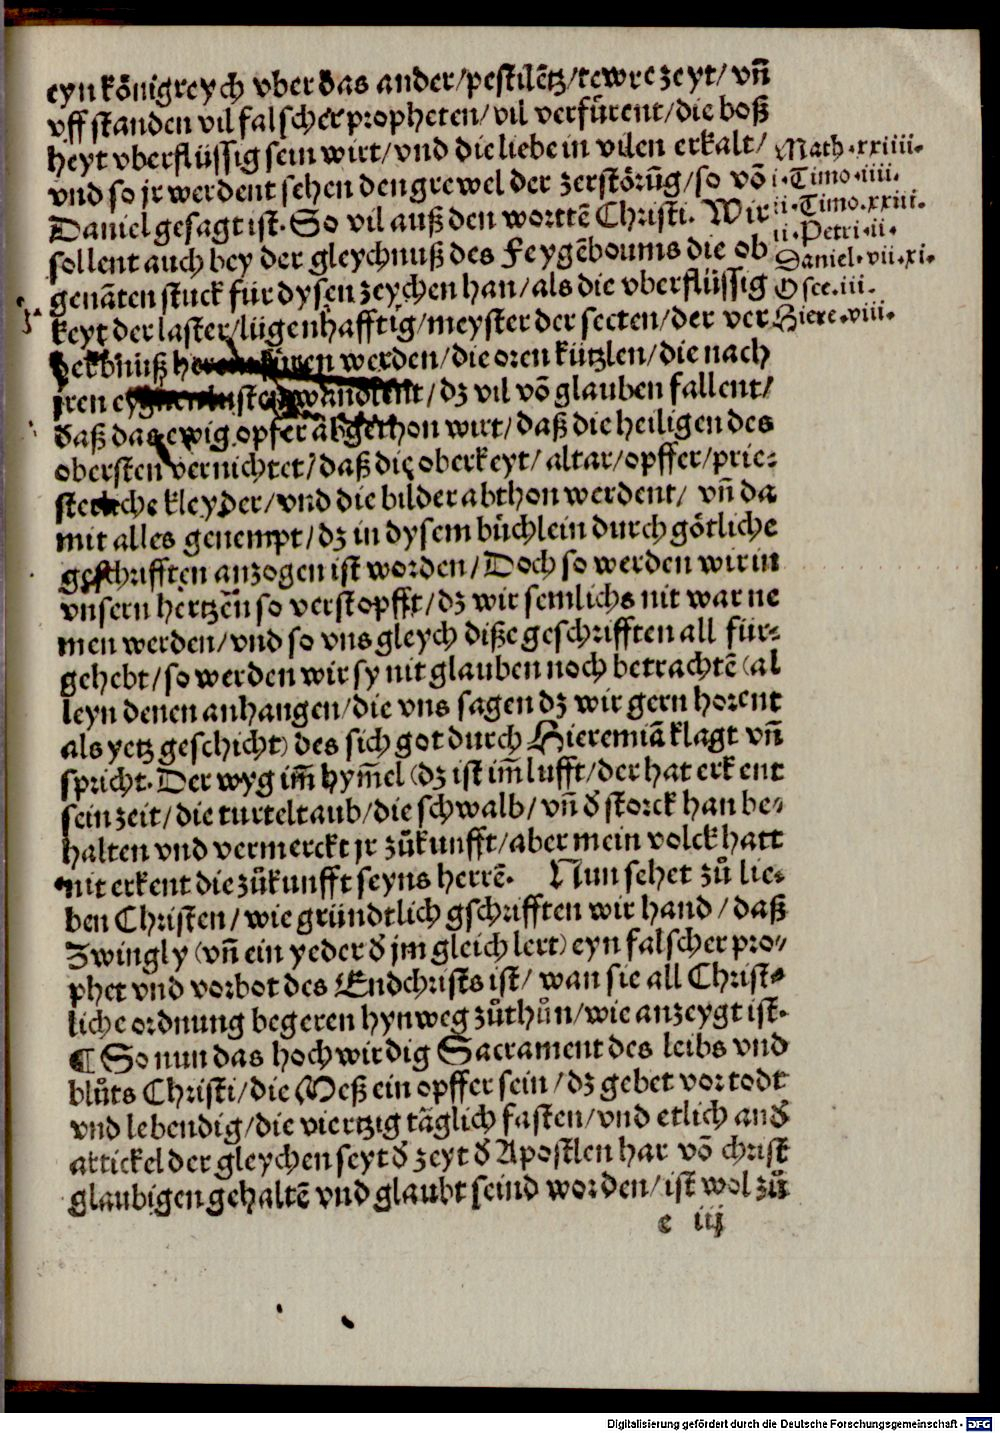 eyn königreych vber das ander/pestilētz/tewre zeyt/ vñ
vff standen vil falscher propheten/ vil verfürent/die boß
heyt vberflüssig sein wirt/vnd die liebe in vilen erkalt/
vnd so jr werdent sehen den grewel der zerstörũg/so võ
Daniel gesagt ist. So vil auß den worttē Christi. Wir
sollent auch bey der gleychnuß des Feygēboums die ob
genāten stuck für dysen zeychen han/als die vberflüssig
keyt der laster/lügenhafftig/meyster der secten/der ver
Math.xxiiii.
i.Timo.iiii.
ii.Timo.xxiii.
ii.Petri.ii.
Daniel.vii.xi.
Osee.iii.
Hiere.viii.
werden/die oren kützlen/die nach
jren /dz vil võ glauben fallent/
daß das ewig opfer abgethon wirt/daß die heiligen des
obersten vernichtet/daß die oberkeyt/altar/opffer/prie-
sterliche kleyder/vnd die bilder abthon werdent/ vñ da
mit alles genempt/dz in dysem büchlein durch götliche
geschrifften anzogen ist worden/Doch so werden wir in
vnsern hertzēn so verstopfft/dz wir semlichs nit war ne
men werden/vnd so vns gleych diße geschrifften all für-
gehebt/so werden wir sy nit glauben noch betrachtē (al
leyn denen anhangen/die vns sagen dz wir gern horent
als yetz geschicht) des sich got durch Hieremiā klagt vñ
spricht. Der wyg im̄ hym̄el (dz ist im̄ lufft/der hat erkent
sein zeit/die turteltaub/die schwalb/vñ ð storck han be-
halten vnd vermerckt jr zůkunfft/aber mein volck hatt
nit erkent die zůkunfft seyns herrē. Nun sehet zů lie-
ben Christen/wie gründtlich gschrifften wir hand/daß
Zwingly (vñ ein yeder ð jm gleich lert) eyn falscher pro-
phet vnd vorbot des Endchrists ist/ wan sie all Christ-
liche ordnung begeren hynweg zůthůn/wie anzeygt ist.
¶ So nun das hochwirdig Sacrament des leibs vnd
blůts Christi/die Meß ein opffer sein/dz gebet vor todt
vnd lebendig/die viertzig täglich fasten/vnd etlich anð
artickel der gleychen seyt ð zeyt ð Apostlen har võ christ
glaubigen gehaltē vnd glaubt seind worden/ist wol zů
e iij
Digitalisierung gefördert durch die Deutsche Forschungsgemeinschaft - DFG